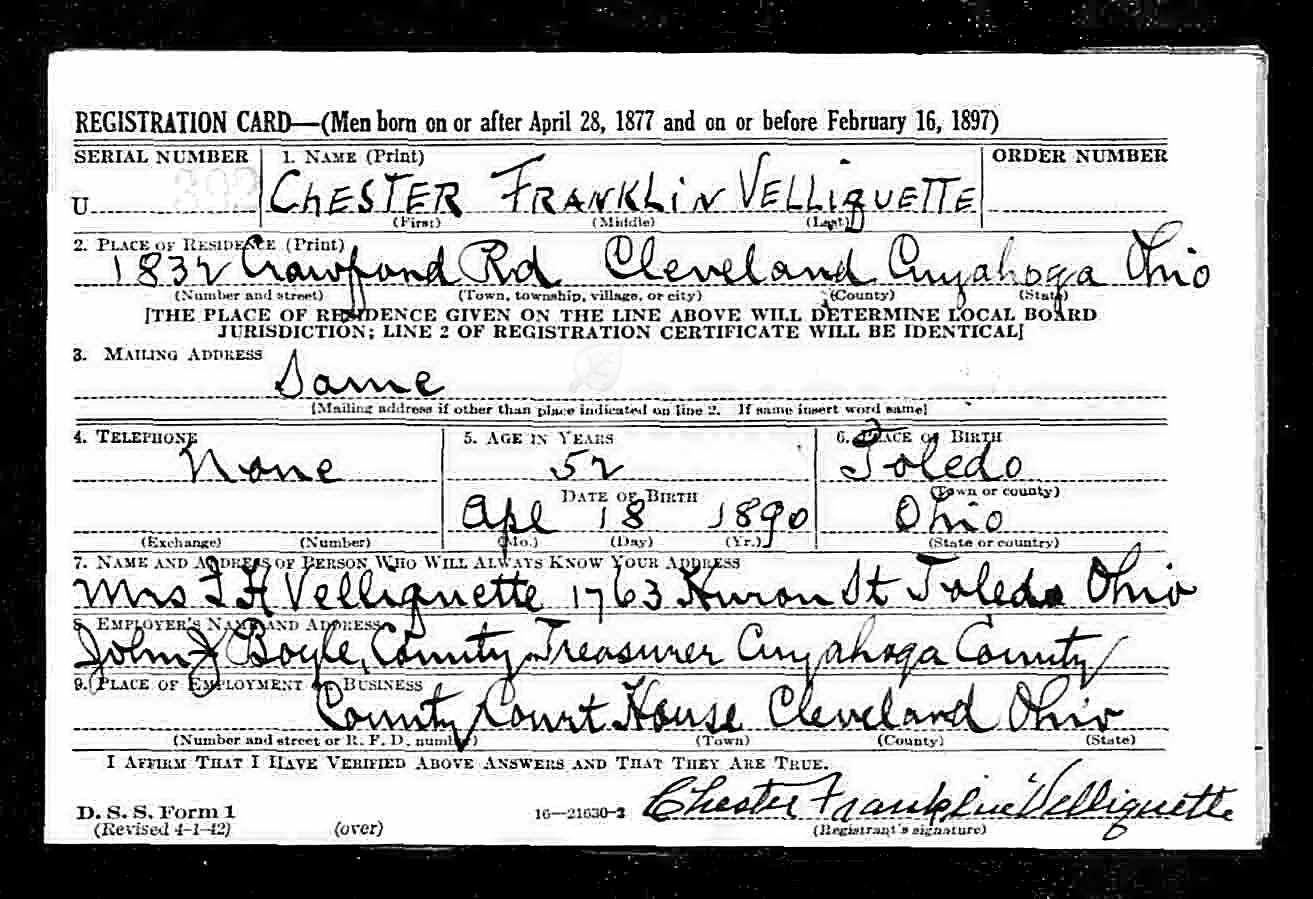 REGISTRATION CARD—(Men born on or after April 28, 1877 and on or before February 16, 1897)
SERIAL NUMBER 1. NAME (Print) ORDER NUMBER
U 302 CHESTER FRANKLIN VELLIQUETTE
(First) (Middle) (Last)
2. PLACE OF RESIDENCE (Print)
1832 Crawford Rd Cleveland Cuyahoga Ohio
(Number and street) (Town, township, village, or city) (County) (State)
[THE PLACE OF RESIDENCE GIVEN ON THE LINE ABOVE WILL DETERMINE LOCAL BOARD
JURISDICTION; LINE 2 OF REGISTRATION CERTIFICATE WILL BE IDENTICAL]
3. MAILING ADDRESS
Same
[Mailing address if other than place indicated on line 2. If same insert word same]
4. TELEPHONE 5. AGE IN YEARS 6. PLACE OF BIRTH
None 52 Toledo
DATE OF BIRTH (Town or county)
Apl 18 1890 Ohio
(Exchange) (Number) (Mo.) (Day) (Yr.) (State or country)
7. NAME AND ADDRESS OF PERSON WHO WILL ALWAYS KNOW YOUR ADDRESS
Mrs F H Velliquette 1763 Huron St Toledo Ohio
8. EMPLOYER'S NAME AND ADDRESS
John J Boyle, County Treasurer Cuyahoga County
9. PLACE OF EMPLOYMENT OR BUSINESS
County Court House Cleveland Ohio
(Number and street or R. F. D. number) (Town) (County) (State)
I AFFIRM THAT I HAVE VERIFIED ABOVE ANSWERS AND THAT THEY ARE TRUE.
D. S. S. Form 1 16—21630-2 Chester Franklin Velliquette
(Revised 4-1-42) (over) (Registrant's signature)